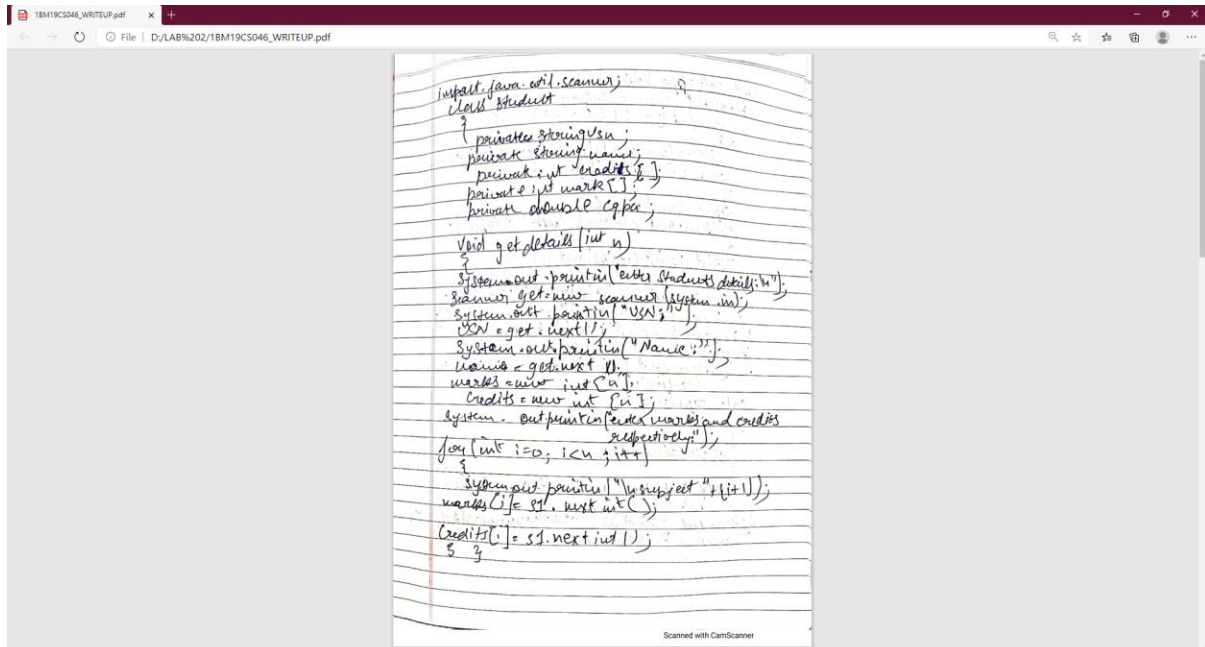 1BM19CS046_WRITEUP.pdf
File | D:/LAB%202/1BM19CS046_WRITEUP.pdf
import.java.util.scanner;
class student
{
private stringusn;
private string name;
private int credits[];
private int mark[];
private double cgpa;
void getdetails(int n)
{
System.out.println("enter students details:\n");
Scanner get=new scanner(system.in);
System.out.println("USN;");
USN = get.next();
System.out.println("Name:");
name = get.next();
marks = new int[n];
Credits = new int [n];
System. out.println("enter marks and credits
respectively:");
for(int i=0; i<n; i++)
{
System.out.println("\n subject "+(i+1));
marks[i]= s1. next int();
Credits[i]= s1.next int();
} }
Scanned with CamScanner